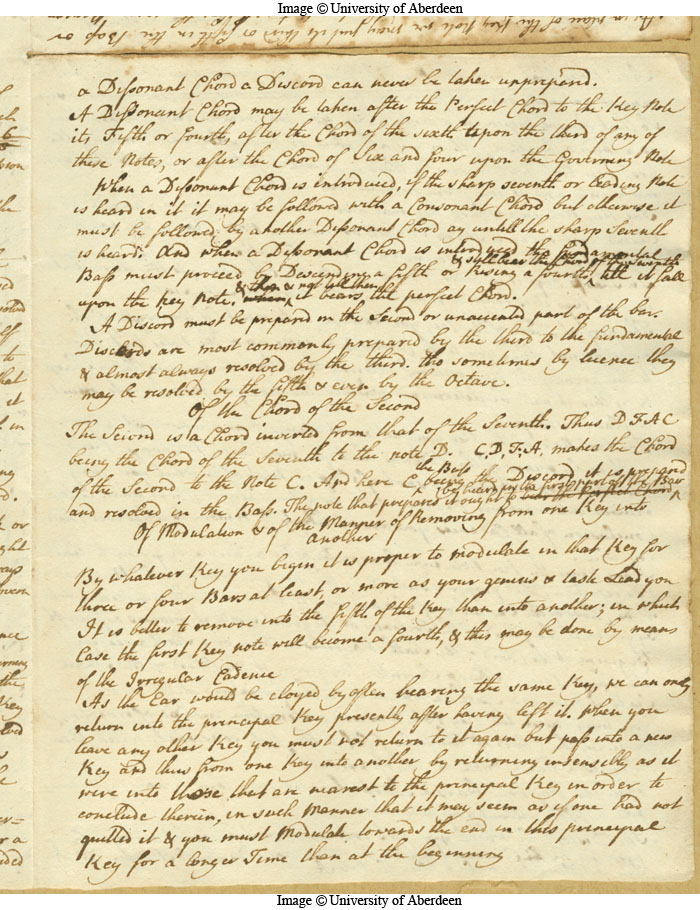 Image © University of Aberdeen
a Dissonant Chord a Discord can never be taken unprepard.
A Dissonant Chord may be taken after the Perfect Chord to the Key Note
its Fifth or fourth, after the Chord of the sixth upon the third of any of
these Notes, or after the Chord of Six and four upon the Governing Note
When a Dissonant Chord is introduced, if the sharp seventh or leading Note
is heard in it it may be followed with a Consonant Chord but otherwise it
must be followed by another Dissonant Chord ay untill the sharp Seventh
is heard. And when a Dissonant Chord is introduced the fundamental
& still bear the Chord of the seventh
Bass must proceed by Descending a fifth or Rising a fourth, till it fall
& then & not till then
upon the Key Note. when it bears the perfect Chord.
A Discord must be prepared in the Second or unaccented part of the bar.
Discords are most commonly prepared by the third to the fundamental
& almost always resolved by the third. tho sometimes by licence they
may be resolved by the fifth & even by the Octave.
Of the Chord of the Second
The Second is a Chord inverted from that of the Seventh. Thus D F A C
being the Chord of the Seventh to the note D. C. D. F. A. makes the Chord
the Bass
of the Second to the Note C. And here C being the Discord it is prepard
by heard in the first part of the Bar
and resolved in the Bass. The note that prepares it ought to bear the Perfect Chord
Of Modulation & of the Manner of Removing from one Key into
another
By whatever Key you begin it is proper to modulate in that Key for
three or four Bars at least, or more as your genius & taste Lead you
It is better to remove into the fifth of the Key than into another; in which
Case the first Key note will become a fourth, & this may be done by means
of the Irregular Cadence
As the Ear would be cloyed by often hearing the same Key, we can only
return into the principal Key presently after having left it. When you
leave any other Key you must not return to it again but pass into a new
Key and thus from one Key into another by returning insensibly as it
were into those that are nearest to the principal Key in order to
conclude therein, in such Manner that it may seem as if one had not
quitted it & you must Modulate towards the end in this principal
Key for a longer Time than at the beginning
Image © University of Aberdeen